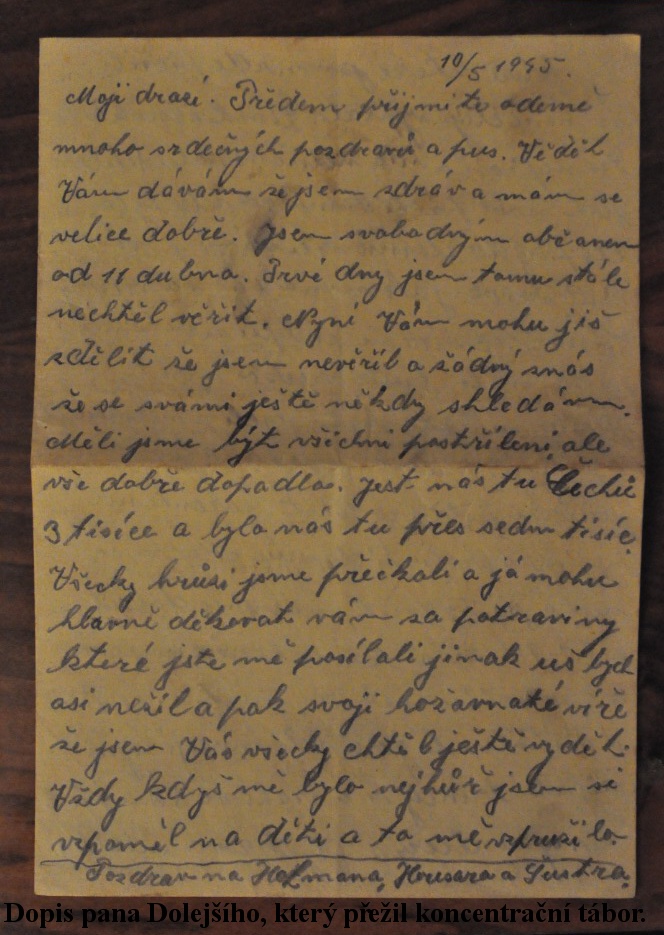 10/5 1945.
Moji drazí. Předem přijmite odemě
mnoho srdečných pozdravů a pus. Věděť
Vám dávám že jsem zdráv a mám se
velice dobře. Jsem svobodným občanem
od 11 dubna. Prvé dny jsem tomu stále
nechtěl věřit. Nyní Vám mohu již
zdělit že jsem nevěřil a žádný znás
že se svámi ještě někdy shledám.
Měli jsme být všichni postříleni, ale
vše dobře dopadlo. Jest nás tu Čechů
3 tisíce a bylo nás tu přes sedm tisíc.
Všecky hrůzi jsme přečkali a já mohu
hlavně děkovat vám za potraviny
které jste mě posílali jinak uš bych
asi nežil a pak svoji hožavnaté víře
že jsem Vás všecky chtěl ještě vyděť.
Vždy kdyš mě bylo nejhůř jsem si
vzpoměl na děti a to mě vzpružilo.
Pozdrav na Hofmana, Housara a Šustra.
Dopis pana Dolejšího, který přežil koncentrační tábor.